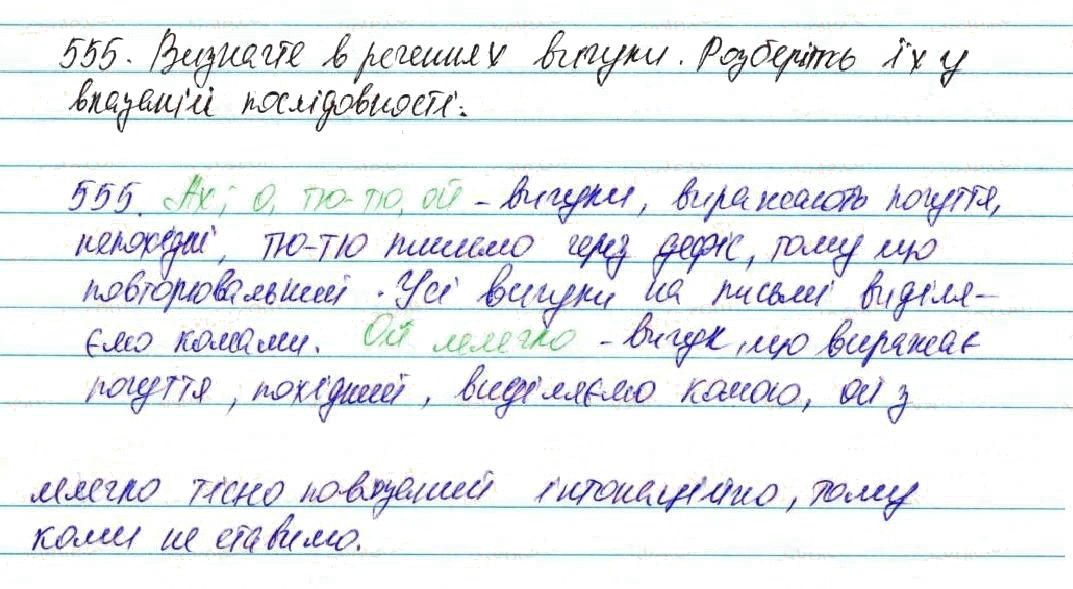 555. Визначте в реченнях вигуки. Розберіть їх у
вказаній послідовності.
555. Ах, о, тю-тю, ой - вигуки, виражають почуття,
непохідні, тю-тю пишемо через дефіс, тому що
повторювальний. Усі вигуки на письмі виділя-
ємо комами. Ой млегко - вигук, що виражає
почуття, похідний, виділяємо комою, ой з
млегко тісно пов'язаний інтонаційно, тому
коми не ставимо.